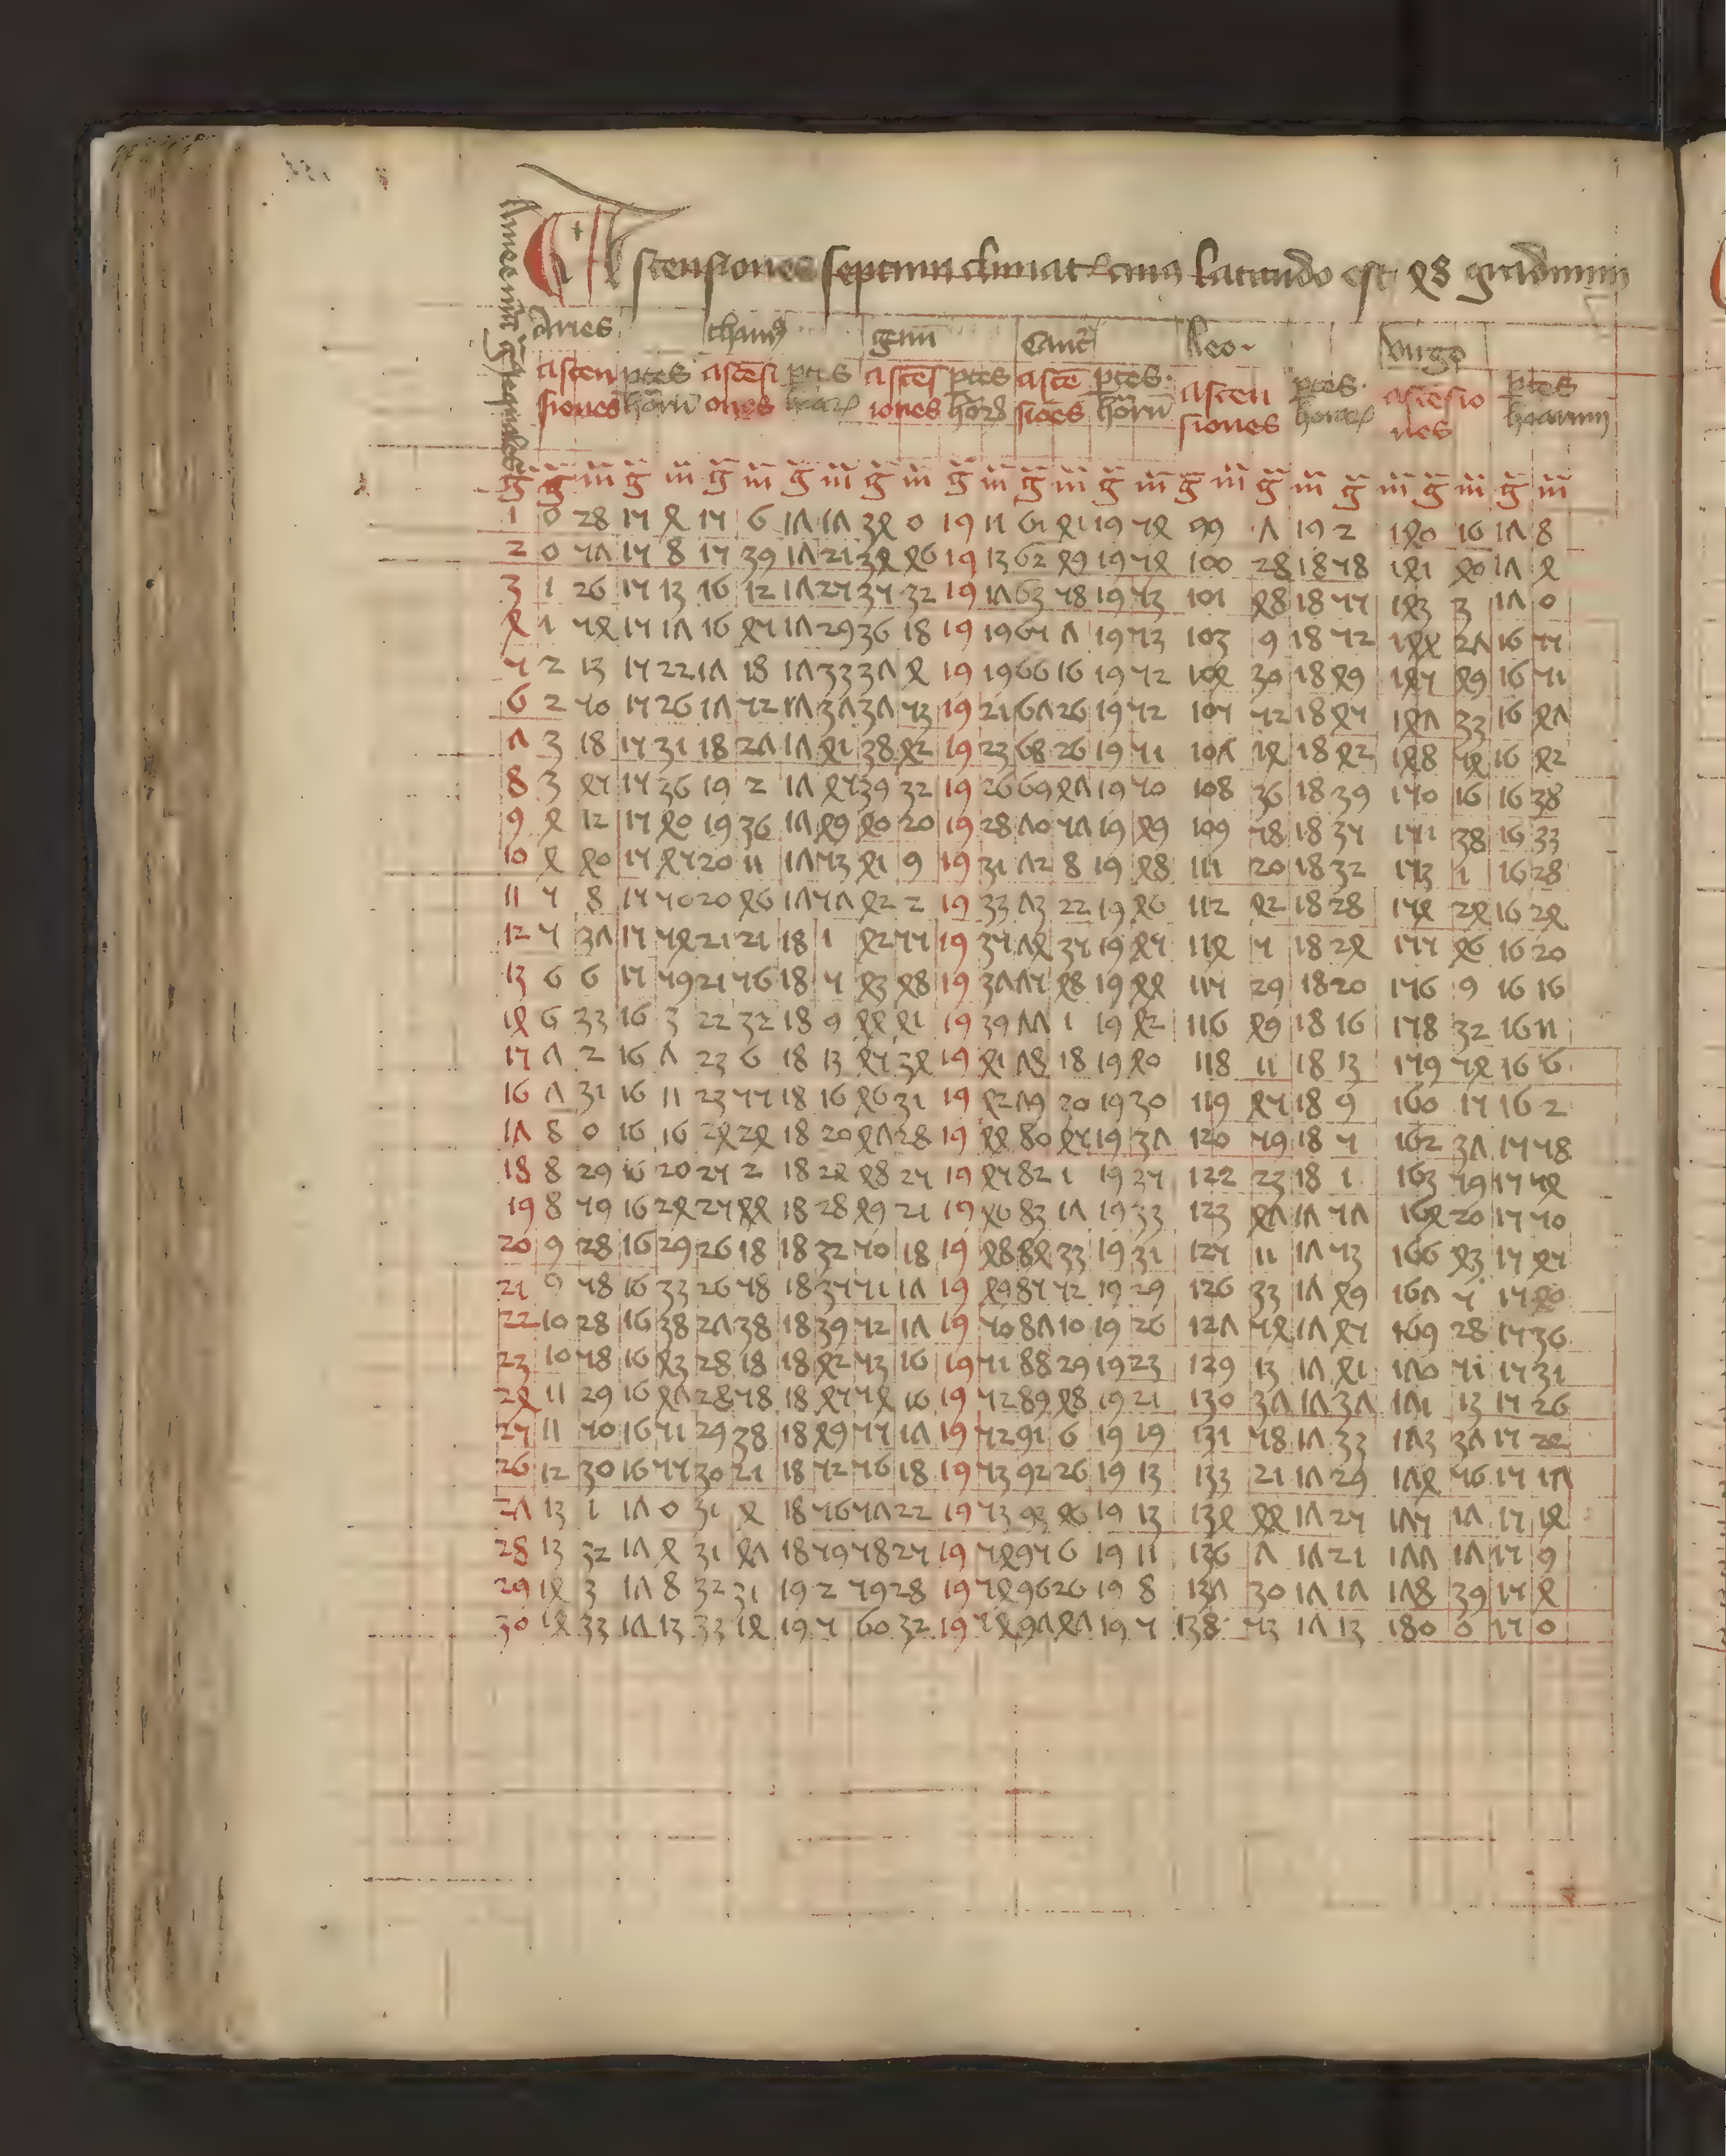 Ascensiones septimi climatis cuius latitudo est 48 graduum
Aries thaurus gemini Cancer Leo Virgo
ascensiones partes horarum ascensiones partes horarum ascensiones partes horarum ascensiones partes horarum ascensiones partes horarum ascensiones partes horarum
g g m g m g m g m g m g m g m g m g m g m g m g m
1 0 28 15 4 15 6 17 17 34 0 19 11 61 41 19 54 99 7 19 2 140 16 17 8
2 0 57 15 8 15 39 17 21 34 46 19 13 62 49 19 54 100 28 18 58 141 40 17 4
3 1 26 15 13 16 12 17 25 35 32 19 17 63 58 19 53 101 48 18 55 143 3 17 0
4 1 54 15 17 16 45 17 29 36 18 19 19 65 7 19 53 103 9 18 52 144 27 16 55
5 2 13 15 22 17 18 17 33 37 4 19 19 66 16 19 52 104 39 18 49 145 49 16 51
6 2 50 15 26 17 52 17 37 37 53 19 21 67 26 19 52 105 52 18 45 147 33 16 47
7 3 18 15 31 18 27 17 41 38 42 19 23 68 26 19 51 107 14 18 42 148 54 16 42
8 3 45 15 36 19 2 17 45 39 32 19 26 69 47 19 50 108 36 18 39 150 16 16 38
9 4 12 15 40 19 36 17 49 40 20 19 28 70 57 19 49 109 58 18 35 151 38 16 33
10 4 40 15 45 20 11 17 53 41 9 19 31 72 8 19 48 111 20 18 32 153 1 16 28
11 5 8 15 50 20 46 17 57 42 2 19 33 73 22 19 46 112 42 18 28 154 24 16 24
12 5 37 15 54 21 21 18 1 42 55 19 35 74 35 19 45 114 5 18 24 155 46 16 20
13 6 6 15 59 21 56 18 5 43 48 19 37 75 48 19 44 115 29 18 20 156 9 16 16
14 6 33 16 3 22 32 18 9 44 41 19 39 77 1 19 42 116 49 18 16 158 32 16 11
15 7 2 16 7 23 6 18 13 45 34 19 41 78 18 19 40 118 11 18 13 159 54 16 6
16 7 31 16 11 23 55 18 16 46 31 19 42 79 20 19 30 119 45 18 9 160 15 16 2
17 8 0 16 16 24 24 18 20 47 28 19 44 80 45 19 37 120 59 18 5 162 37 15 58
18 8 29 16 20 25 2 18 24 48 25 19 45 82 1 19 35 122 23 18 1 163 59 15 54
19 8 59 16 24 25 44 18 28 49 21 19 46 83 17 19 33 123 47 17 57 164 20 15 50
20 9 28 16 29 26 18 18 32 50 18 19 48 84 33 19 31 125 11 17 53 166 43 15 45
21 9 58 16 33 26 58 18 35 51 17 19 49 85 52 19 29 126 33 17 49 167 5 15 40
22 10 28 16 38 27 38 18 39 52 17 19 50 87 10 19 26 127 54 17 45 169 28 15 36
23 10 58 16 43 28 18 18 42 53 16 19 51 88 29 19 23 129 13 17 41 170 51 15 31
24 11 29 16 47 28 58 18 45 54 16 19 52 89 48 19 21 130 37 17 37 171 13 15 26
25 11 50 16 51 29 38 18 49 55 17 19 52 91 6 19 19 131 58 17 33 173 37 15 22
26 12 30 16 55 30 21 18 52 56 18 19 53 92 26 19 13 133 21 17 29 174 56 15 17
27 13 1 17 0 31 4 18 56 57 22 19 53 93 46 19 13 134 44 17 25 175 17 15 14
28 13 32 17 4 31 47 18 59 58 25 19 54 95 6 19 11 136 7 17 21 177 17 15 9
29 14 3 17 8 32 31 19 2 59 28 19 54 96 26 19 8 137 30 17 17 178 39 15 4
30 14 33 17 13 33 14 19 5 60 32 19 54 97 47 19 5 138 53 17 13 180 0 15 0